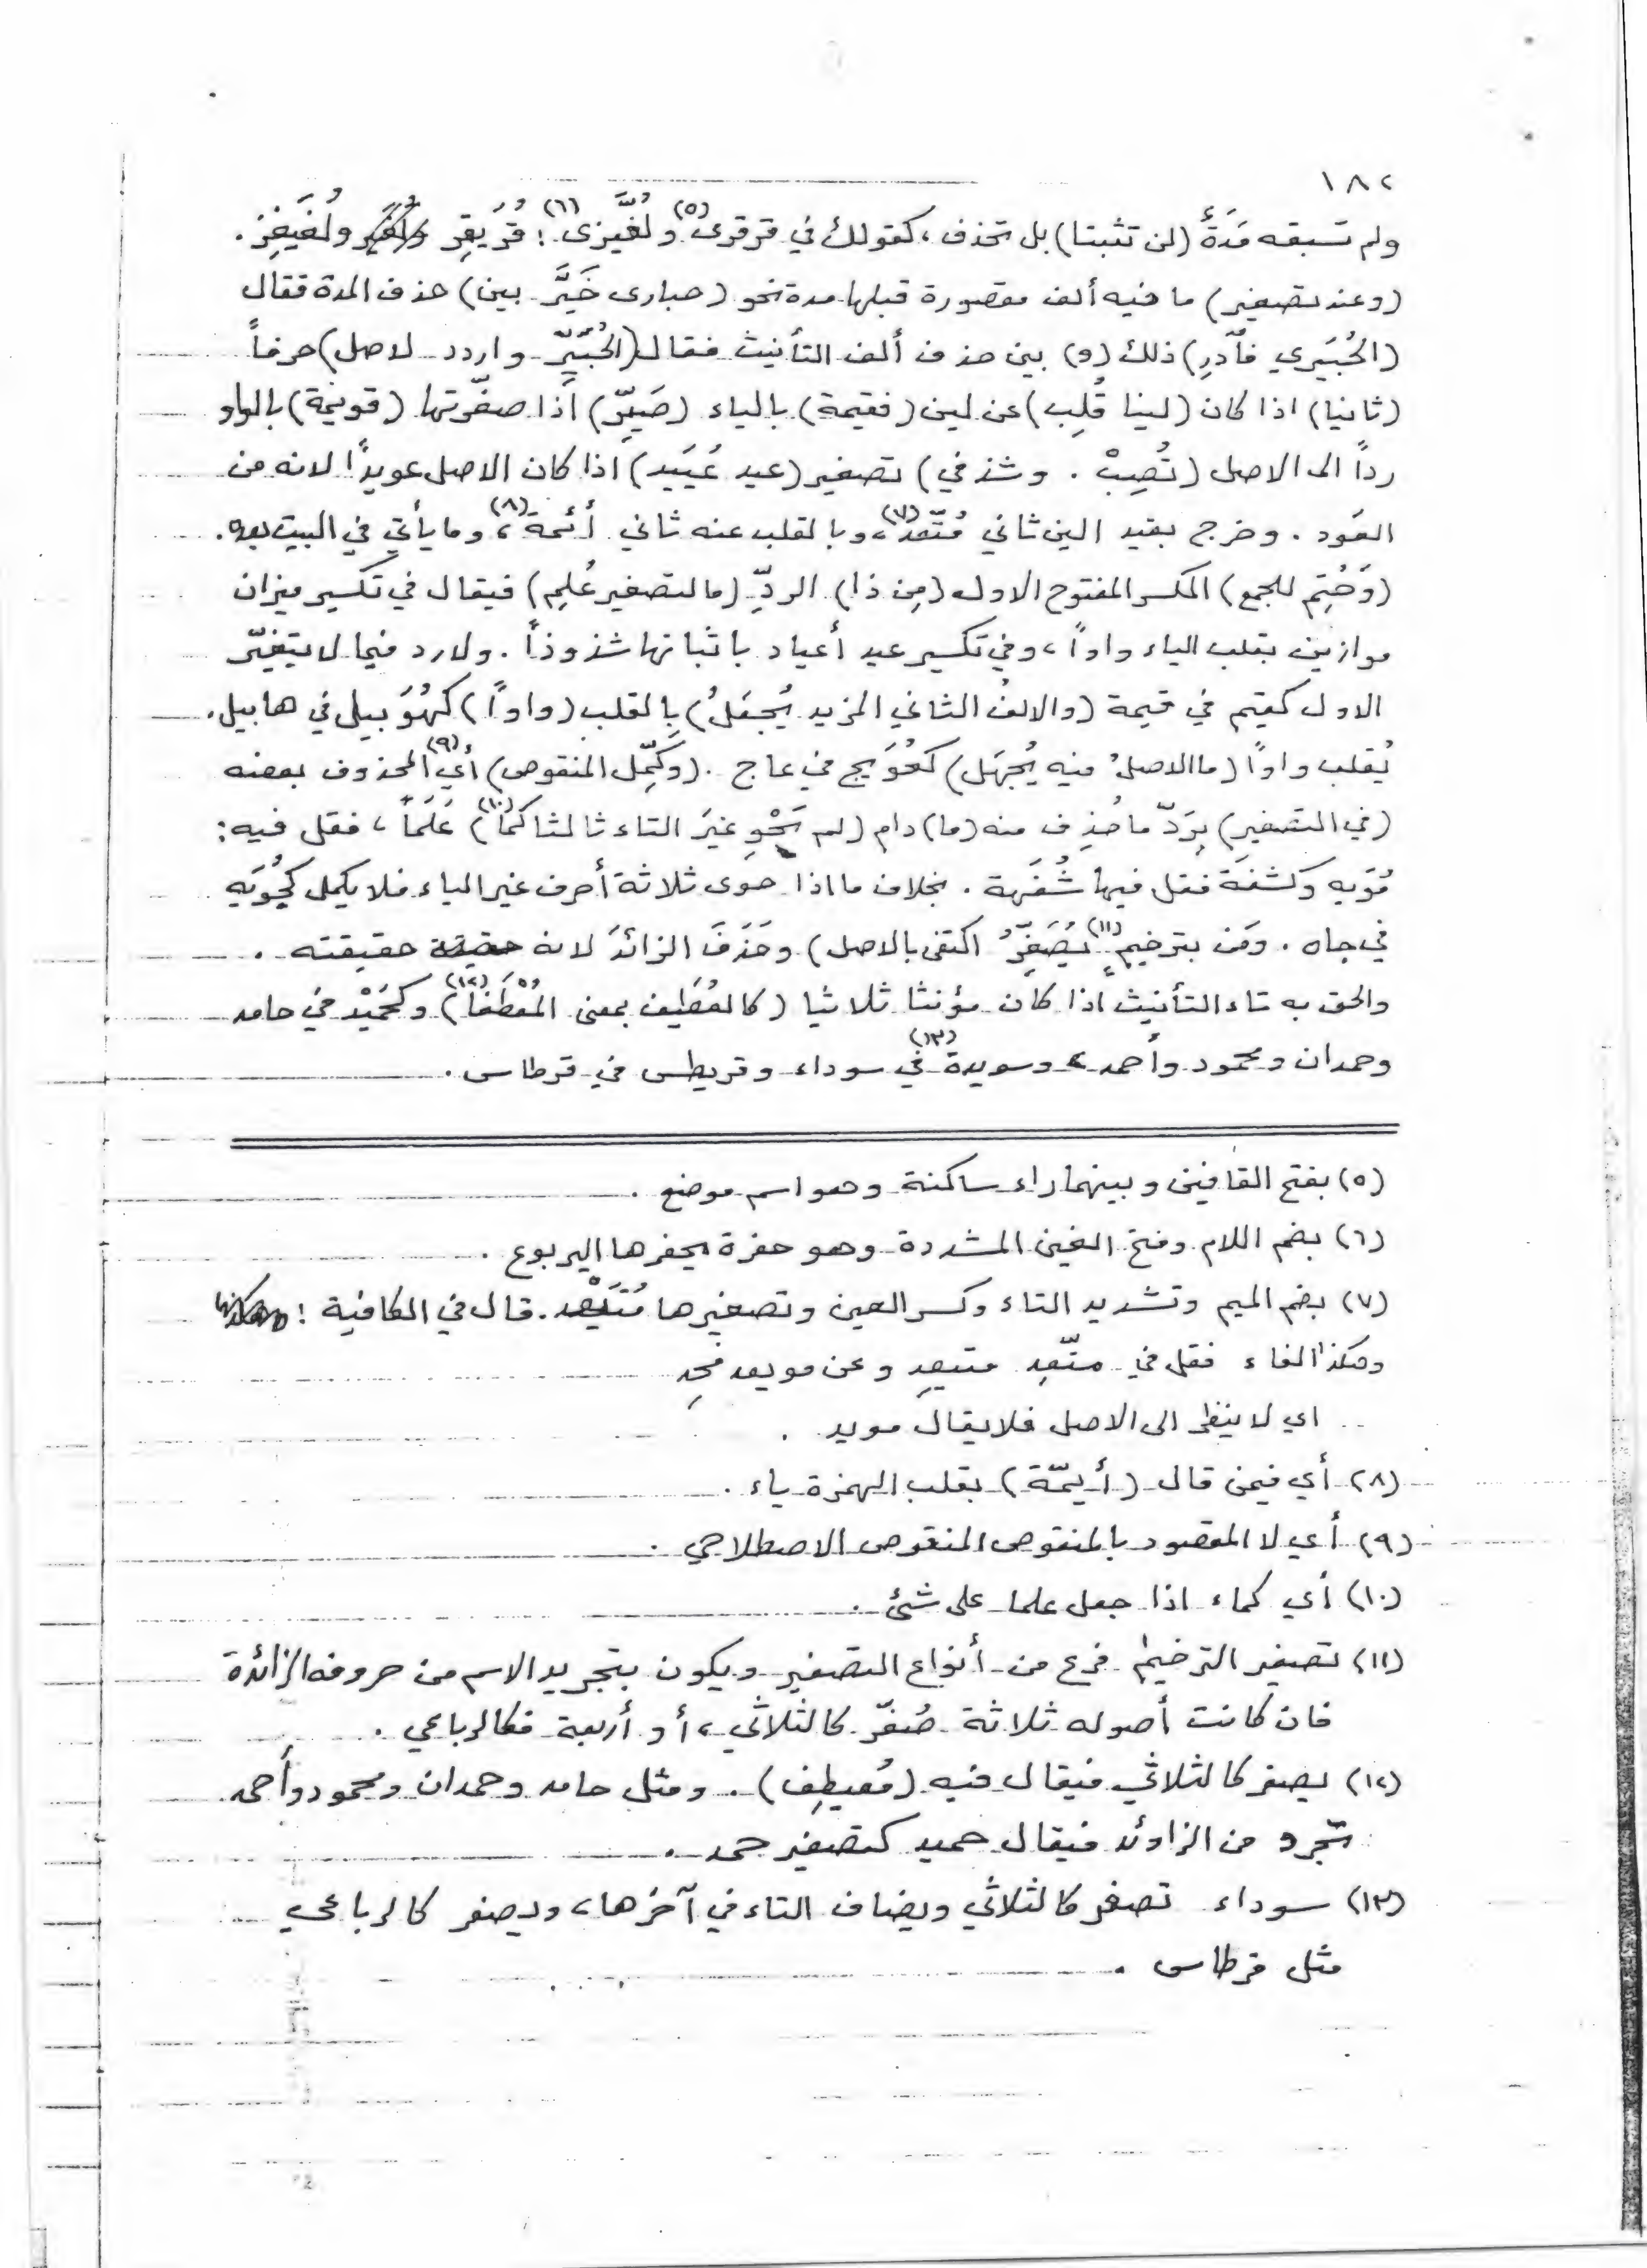 ١٨٢
ولم تسبقه مَدَةٌ (لن تثبتا) بل تحذف ، كقولك في قرقرى(٥) ولُغَّيزى(٦) : قُرَيقِر ولُغَيغِز .
(وعند تصغير) ما فيه ألف مقصورة قبلها مدة نحو (حبارى خَيِّر بين) حذف المدة فقال
(الحُبَيري فادّرِ) ذلك (و) بين حذف ألف التأنيث فقال (الحُبَيِّر واردد لاصل) حرفاً
(ثانيا) اذا كان (لينا قُلِب) عن لين (فقيمة) بالياء (صَيِّر) اذا صغّرتها (قويمة) بالواو
رداً الى الاصل (تُصِبْ . وشذ في) تصغير (عيد عُيَيد) اذا كان الاصل عويداً لانه من
العَود . وخرج بقيد الين ثاني مُتّعد(٧) ، وبالقلب عنه ثاني أئمة(٨) ، وما يأتي في البيت بعده .
(وَحُتِم للجمع) المكسر المفتوح الاول (مِن ذا) الردّ (ما لتصغير عُلِم) فيقال في تكسير ميزان
موازين بقلب الياء واواً ، وفي تكسير عيد أعياد باثباتها شذوذاً . ولا رد فيما لا يتغيّر
الاول كقيم في قيمة (والالف الثاني المزيد يُجعَلُ) بالقلب (واواً) كهُوَيبيل في هابيل .
يُقلب واواً (ما الاصلُ فيه يُجهَل) كعُوَيج في عاج . (وكَمِّل المنقوص) أي(٩) المحذوف بعضه
(في التصغير) بردّ ما حُذِف منه (ما) دام (لم يَحْوِ غيرَ التاء ثالثا كما(١٠)) عَلَماً ، فقل فيه :
مُوَيه وكشفة فقل فيها شُفَيهة . بخلاف ما اذا حوى ثلاثة أحرف غير الياء فلا يكمل كجُوَيه
في جاه . ومَن بترخيم(١١) يُصَغِّرُ اكتفى بالاصل) وحَذَفَ الزائدَ لانه حقيقته .
والحق به تاء التأنيث اذا كان مؤنثا ثلاثيا (كالعُطَيف بمعنى المُعْطَفا(١٢)) وكحُمَيْد في حامد
وحمدان ومحمود وأحمد ، وسويدة(١٣) في سوداء وقريطس في قرطاس .
(٥) بفتح القافين وبينهما راء ساكنة وهو اسم موضع .
(٦) بضم اللام وفتح الغين المشددة وهو حفرة يحفرها اليربوع .
(٧) بضم الميم وتشديد التاء وكسر العين وتصغيرها مُتَيْعد . قال في الكافية :
وهكذا الفاء فقل في متّعِد متيعِد وعن مويعد فَحِد
اي لا ينظر الى الاصل فلا يقال مويد .
(٨) أي فيمن قال (أيمّة) بقلب الهمزة ياء .
(٩) أي لا المقصود بالمنقوص المنقوص الاصطلاحي .
(١٠) أي كماء اذا جعل علما على شئ .
(١١) تصغير الترخيم فرع من أنواع التصغير ويكون بتجريد الاسم من حروفه الزائدة
فان كانت أصوله ثلاثة صُغّر كالثلاثي ، أو أربعة فكالرباعي .
(١٢) يصغر كالثلاثي فيقال فيه (مُعيطِف) . ومثل حامد وحمدان ومحمود وأحمد
تجرد من الزاوئد فيقال حميد كتصغير حمد .
(١٣) سوداء تصغر كالثلاثي ويضاف التاء في آخرها ، ويصغر كالرباعي
مثل قرطاس .